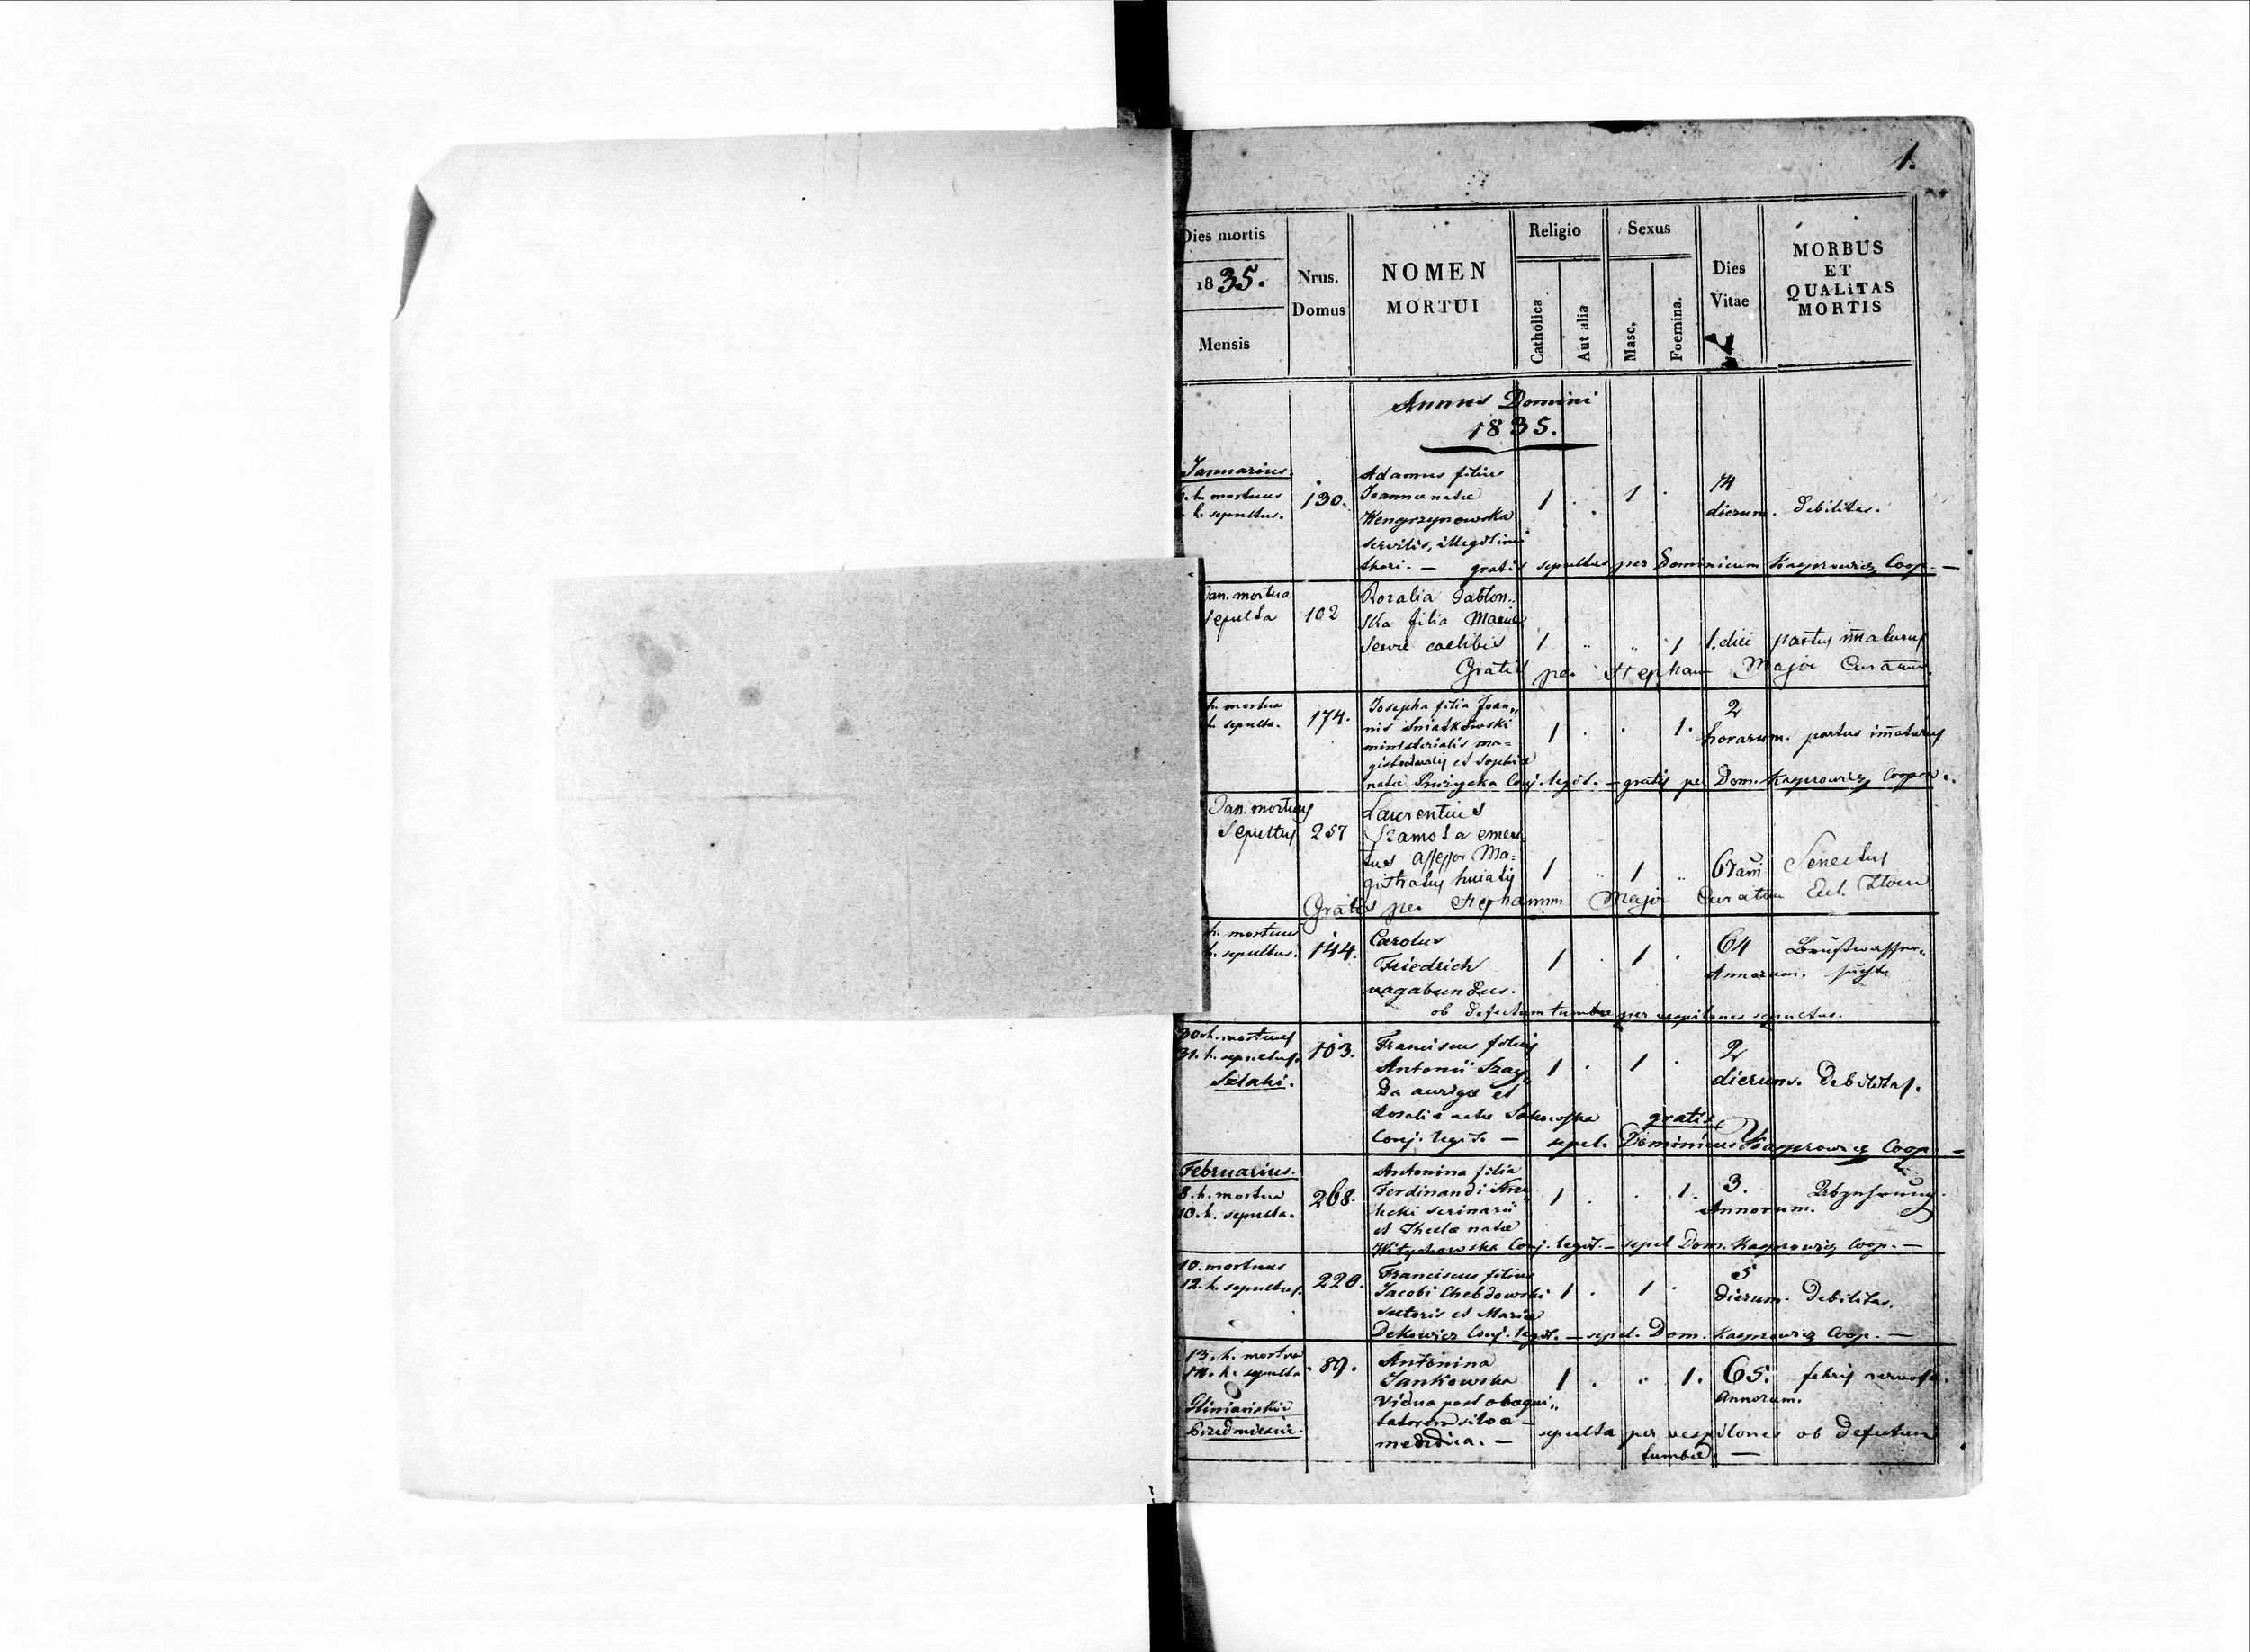 1.
Dies mortis
1835.
Mensis
Nrus. Domus
NOMEN MORTUI
Religio
Catholica
Aut alia
Sexus
Masc.
Foemina.
Dies Vitae
MORBUS ET QUALITAS MORTIS
Annus Domini
1835.
Januarius.
h. mortuus
h. sepultus.
130.
Adamus filius
Joannae natae
Wengrzynowska
servilis, illegitimi
thori. — gratis sepultus per Dominicum Kasprowicz Coop. —
1 . 1 .
14 dierum. debilitas.
Jan. mortua
sepulta
102
Rozalia Jablon„
ska filia Mariae
servae caelibis
1 „ „ 1
1. diei partus im̄aturus
Gratis per Stephan Major Curatum
h. mortua
h. sepulta.
174.
Josepha filia Joan„
nis Sniatkowski
ministerialis ma=
gistratualis et Sophiae
natae Conj. legit. — gratis per Dom. Kasprowicz Cooper.
1 . . 1.
2 horarum. partus im̄aturus
Jan. mortuus
sepultus
257
Laurentius
Szamota emeri
tus assessor Ma=
gistratus
1 „ 1 „
67 ani Senectus
Gratis per Stephanum Major Curatum
h. mortuus
h. sepultus.
144.
Carolus
Friedrich
vagabundus.
1 . 1 .
64 Annorum. Brustwasser„
sucht
ob defectum tumbae per vespilones sepultus.
30. h. mortuus
31. h. sepultus.
Szlaki.
103.
Franciscus filius
Antonii Szay„
da aurigae et
Rosaliae natae Sakowska
Conj. legit. — gratis
sepel. Dominicus Kasprowicz Coop. —
1 . 1 .
2 dierum. Debilitas.
Februarius.
8. h. mortua
10. h. sepulta.
268.
Antonina filia
Ferdinandi
scrinarii
et Theclae natae
Conj. legit. — sepel. Dom. Kasprowicz Coop. —
1 . . 1.
3. Annorum. Abzehrung.
10. mortuus
12. h. sepultus.
220.
Franciscus filius
Jacobi Chebdowski
sutoris et Mariae
Dekowicz Conj. legit. — sepel. Dom. Kasprowicz Coop. —
1 . 1 .
5 dierum. Debilitas.
13. h. mortua
14. h. sepulta
Gliniańskie
Przedmieście.
89.
Antonina
Jankowska
vidua post obequi„
tatorem silvae —
mendica. — sepulta per vespilones ob defectum
tumbae. —
1 . „ 1.
65. Annorum. febris nervosa.